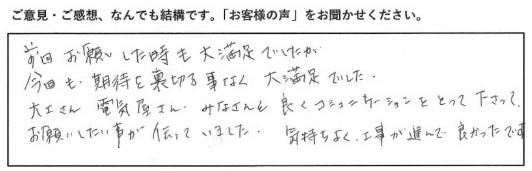 ご意見・ご感想、なんでも結構です。「お客様の声」をお聞かせください。
前回お願いした時も大満足でしたが
今回も、期待を裏切る事なく大満足でした。
大工さん 電気屋さん、みなさんも良くコミュニケーションをとって下さって、
お願いしたい事が伝っていました。 気持ちよく、工事が進んで良かったです